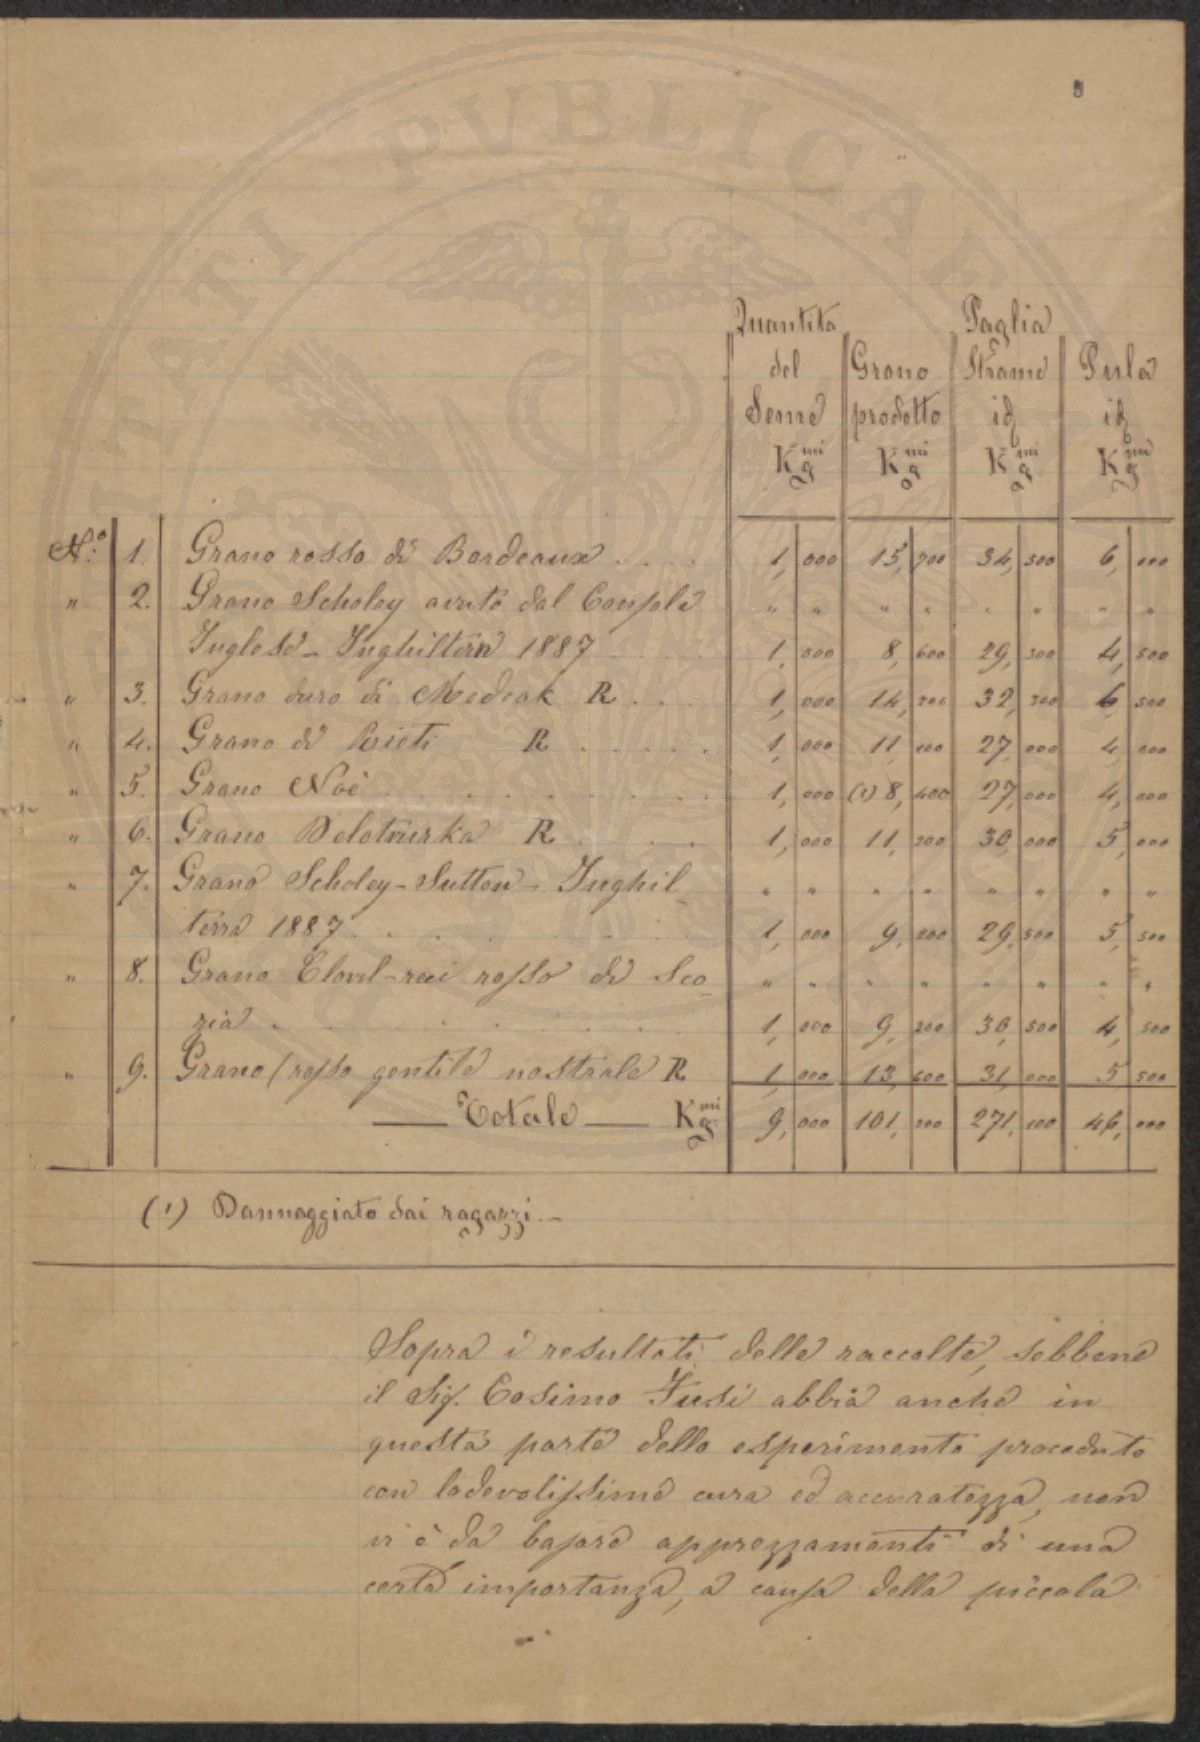 5
TATI PUBLICAE
Quantità del Seme Kg.mi | Grano prodotto Kg.mi | Paglia Strame id Kg.mi | Pula id Kg.mi
N.o 1. Grano rosso di Bordeaux . . . 1,000 15,700 34,500 6,000
" 2. Grano Scholey avuto dal Console " " " " " " " "
Inglese - Inghilterra 1887 1,000 8,600 29,300 4,500
" 3. Grano duro di Medeak R . . . 1,000 14, 32, 6,500
" 4. Grano di Rieti R . . . . . 1,000 11, 27,000 4,000
" 5. Grano Noè . . . . . . . . 1,000 (1) 8,400 27,000 4,000
" 6. Grano Belotourka R . . . . 1,000 11, 30,000 5,000
" 7. Grano Scholey-Sutton - Inghil " " " " " " " "
terra 1887 . . . . . . . . 1,000 9, 29,500 5,500
" 8. Grano rosso di Sco- " " " " " " " "
zia . . . . . . . . . 1,000 9, 30,500 4,500
" 9. Grano rosso gentile nostrale R 1,000 13,600 31,000 5,500
Totale Kg.mi 9,000 101, 271, 46,000
(1) Dannaggiato dai ragazzi. -
Sopra i resultati delle raccolte, sebbene
il Sig. Cosimo Fusi abbia anche in
questa parte dello esperimento proceduto
con lodevolissima cura ed accuratezza, non
vi è da basare apprezzamenti di una
certa importanza, a causa della piccola